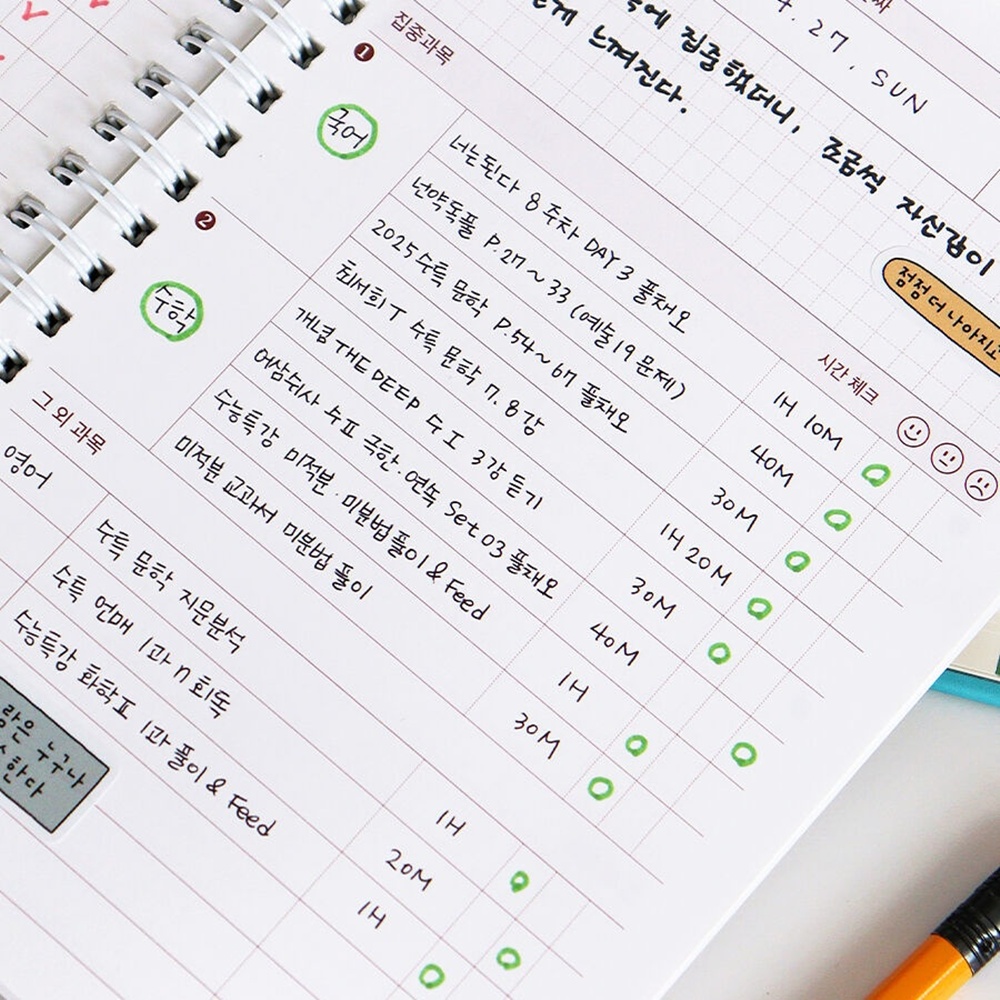 27, SUN
집중했더니, 조금씩 자신감이
느껴진다.
점점 더 나아지고
❶ 집중과목
시간 체크
국어
너는된다 8주차 DAY 3 풀채오 1H 10M
넌약독풀 P.27~33 (예술 19문제) 40M
2025수특 문학 P.54~67 풀채오 30M
최서희T 수특 문학 7.8강 1H 20M
❷
수학
개념 THE DEEP 수Ⅰ 3강 듣기 30M
어삼쉬사 수Ⅱ 극한.연속 Set 03 풀채오 40M
수능특강 미적분. 미분법풀이 & Feed 1H
미적분 교과서 미분법 풀이 30M
그 외 과목
영어
수특 문학 지문분석 1H
수특 언매 1과 n회독 20M
수능특강 화학Ⅱ 1과 풀이 & Feed 1H
람은 누구나
한다